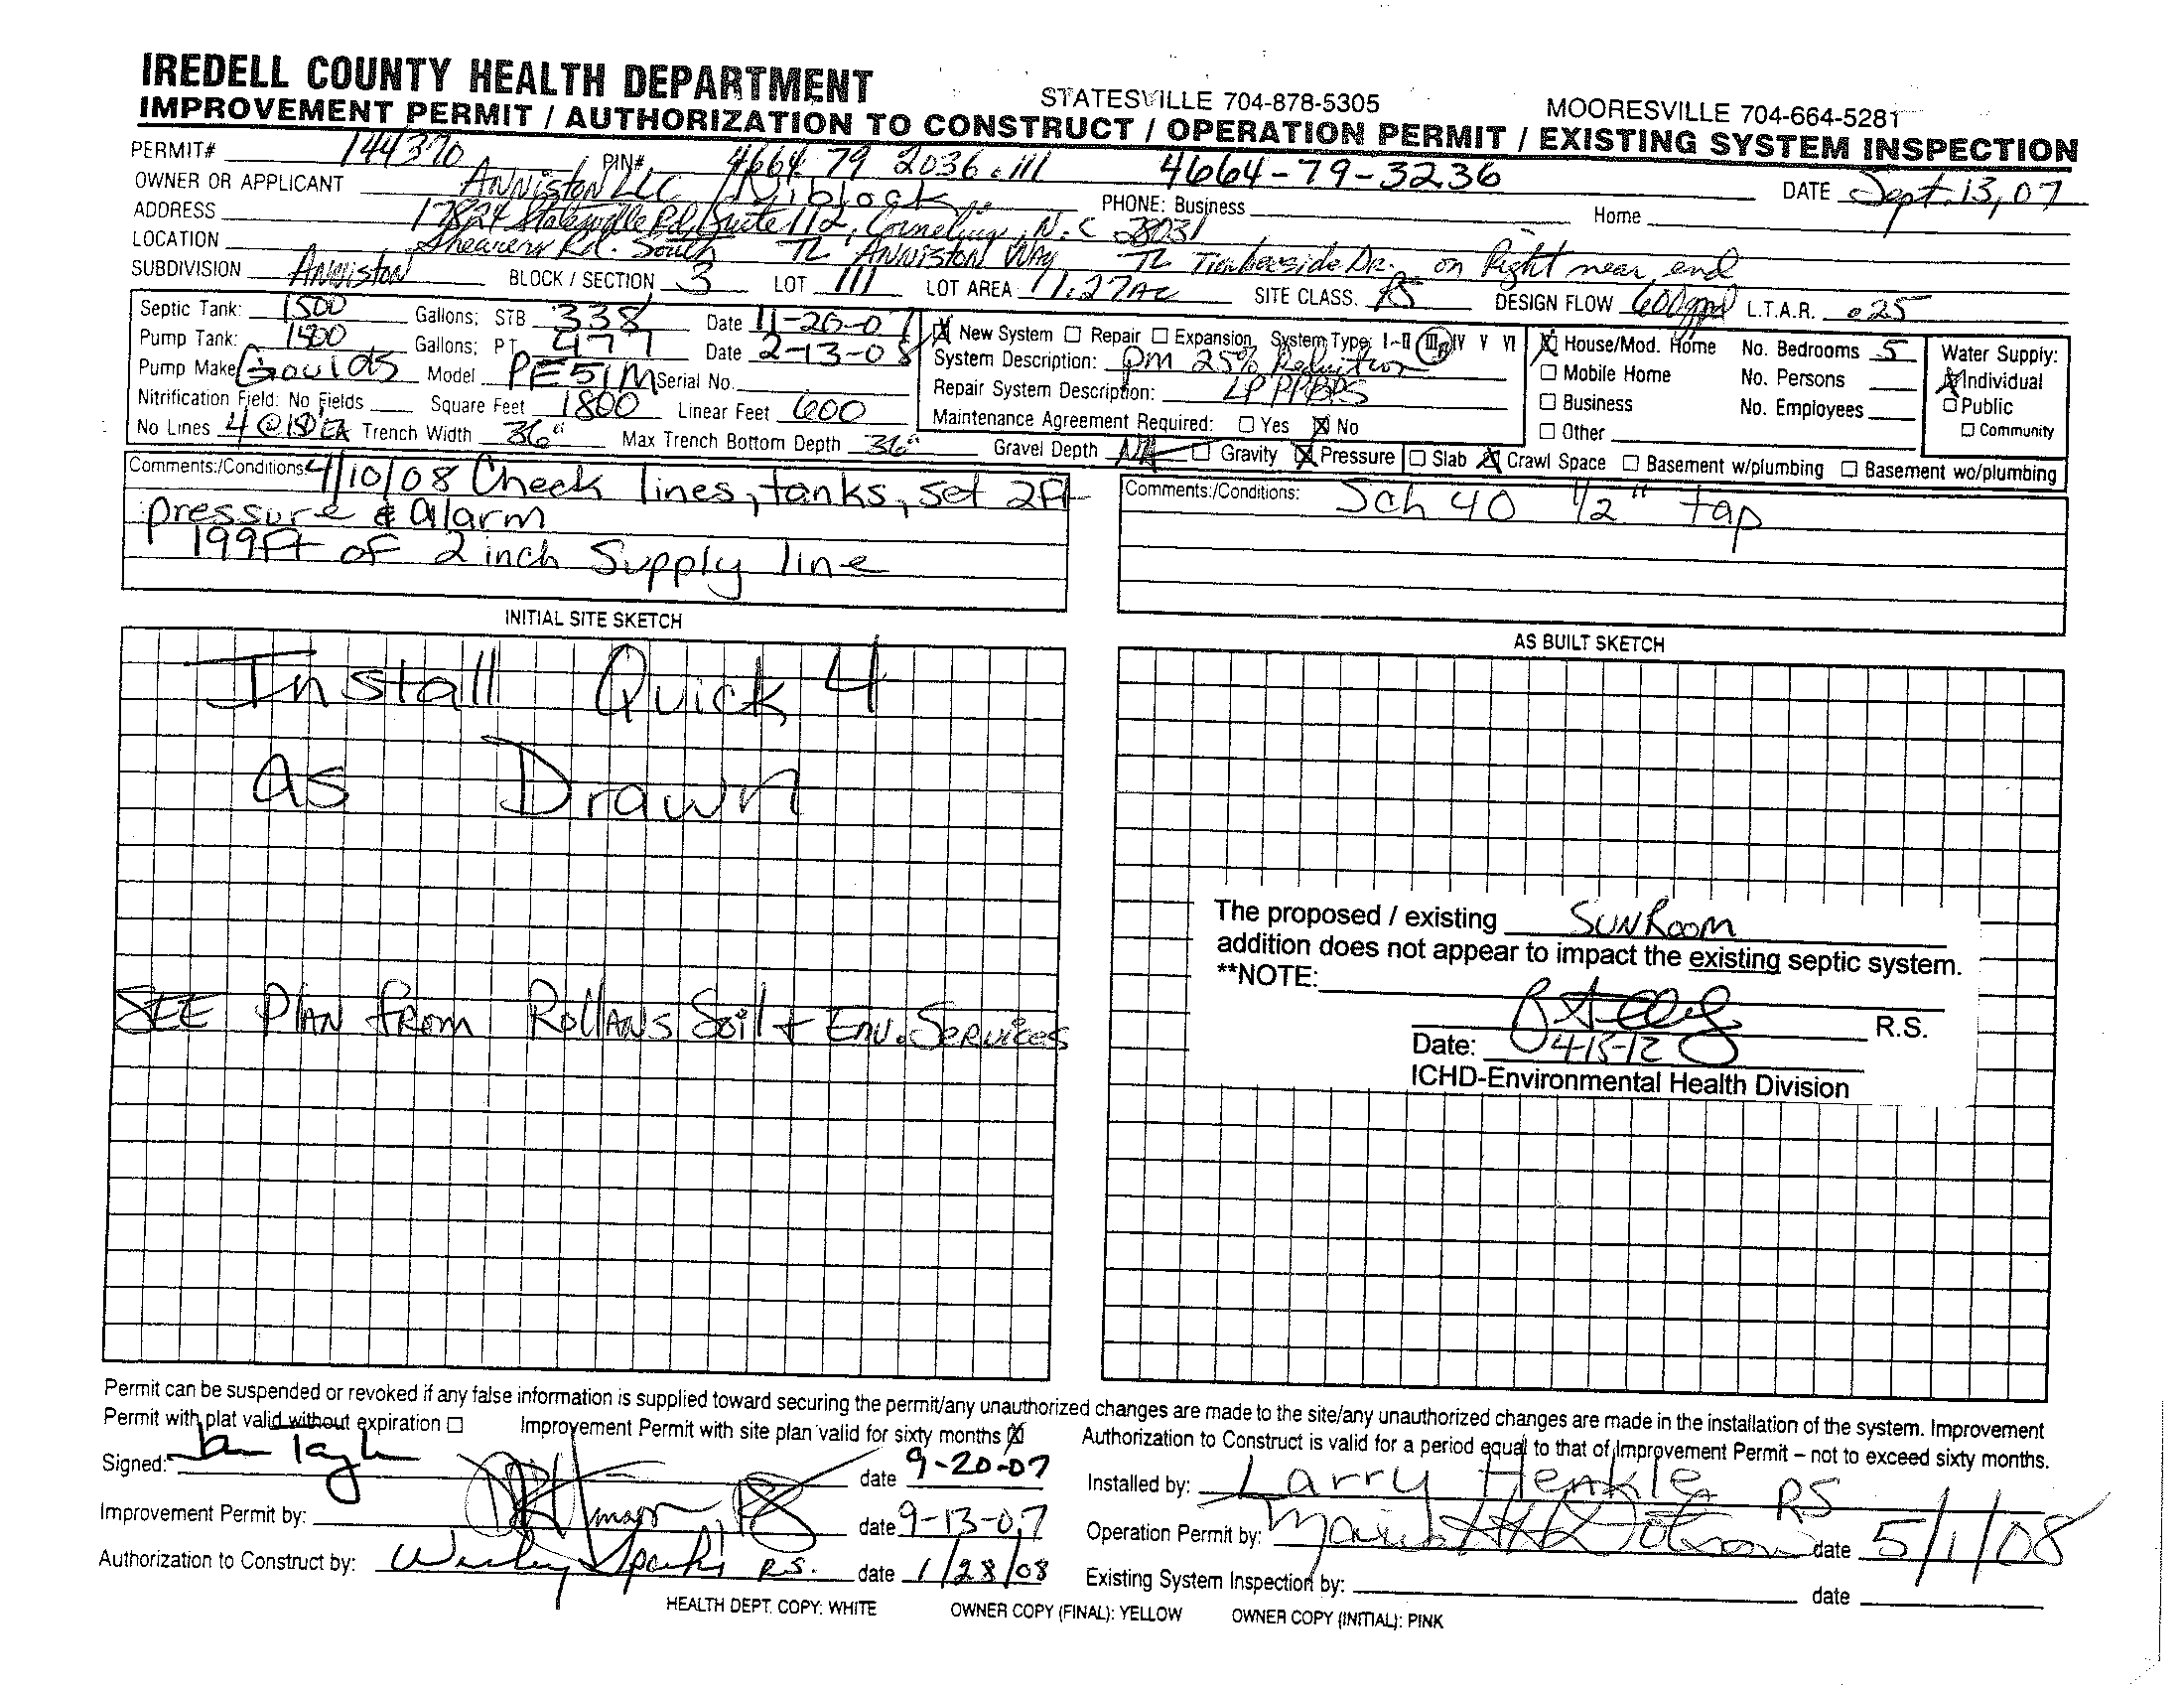 IREDELL COUNTY HEALTH DEPARTMENT STATESVILLE 704-878-5305 MOORESVILLE 704-664-5281
IMPROVEMENT PERMIT / AUTHORIZATION TO CONSTRUCT / OPERATION PERMIT / EXISTING SYSTEM INSPECTION
PERMIT# 144370 PIN# 4664 79 2036.111 4664-79-3236
OWNER OR APPLICANT ANNISTON LLC / Niblock PHONE: Business Home DATE Sept. 13, 07
ADDRESS 17824 Statesville Rd, Suite 112, Cornelius, N.C 28031
LOCATION Shearers Rd. South TL ANNISTON Way TL Timberside Dr. on Right near end
SUBDIVISION Anniston BLOCK / SECTION 3 LOT 111 LOT AREA 1.27AC SITE CLASS. PS DESIGN FLOW 600gpd L.T.A.R. .025
Septic Tank: 1500 Gallons; STB 338 Date 11-20-07
Pump Tank: 1500 Gallons; PT 477 Date 2-13-08
Pump Make Goulds Model PE51M Serial No.
Nitrification Field: No Fields Square Feet 1800 Linear Feet 600
No Lines 4 @ 150 EA Trench Width 36" Max Trench Bottom Depth 36" Gravel Depth NA ☐ Gravity ☒ Pressure ☐ Slab ☒ Crawl Space ☐ Basement w/plumbing ☐ Basement wo/plumbing
☒ New System ☐ Repair ☐ Expansion System Type: I-II III IV V VI
System Description: Pm 25% Reduction
Repair System Description: LPPPBPS
Maintenance Agreement Required: ☐ Yes ☒ No
☒ House/Mod. Home No. Bedrooms 5
☐ Mobile Home No. Persons
☐ Business No. Employees
☐ Other
Water Supply:
☒ Individual
☐ Public
☐ Community
Comments:/Conditions: 4/10/08 Check lines, tanks, set 2ft
pressure & alarm
199ft of 2 inch Supply line
Comments:/Conditions: Sch 40 1/2" tap
INITIAL SITE SKETCH
Install Quick 4
as Drawn
SEE PLAN From Rollans Soil + Env. Services
AS BUILT SKETCH
The proposed / existing SUNROOM
addition does not appear to impact the existing septic system.
**NOTE:
R.S.
Date: 4-15-12
ICHD-Environmental Health Division
Permit can be suspended or revoked if any false information is supplied toward securing the permit/any unauthorized changes are made to the site/any unauthorized changes are made in the installation of the system. Improvement
Permit with plat valid without expiration ☐ Improvement Permit with site plan valid for sixty months ☒ Authorization to Construct is valid for a period equal to that of Improvement Permit – not to exceed sixty months.
Signed: date 9-20-07
Improvement Permit by: date 9-13-07
Authorization to Construct by: Wesley Sparks R.S. date 1/28/08
Installed by: Larry Henkle
Operation Permit by: RS date 5/1/08
Existing System Inspection by: date
HEALTH DEPT. COPY: WHITE OWNER COPY (FINAL): YELLOW OWNER COPY (INITIAL): PINK